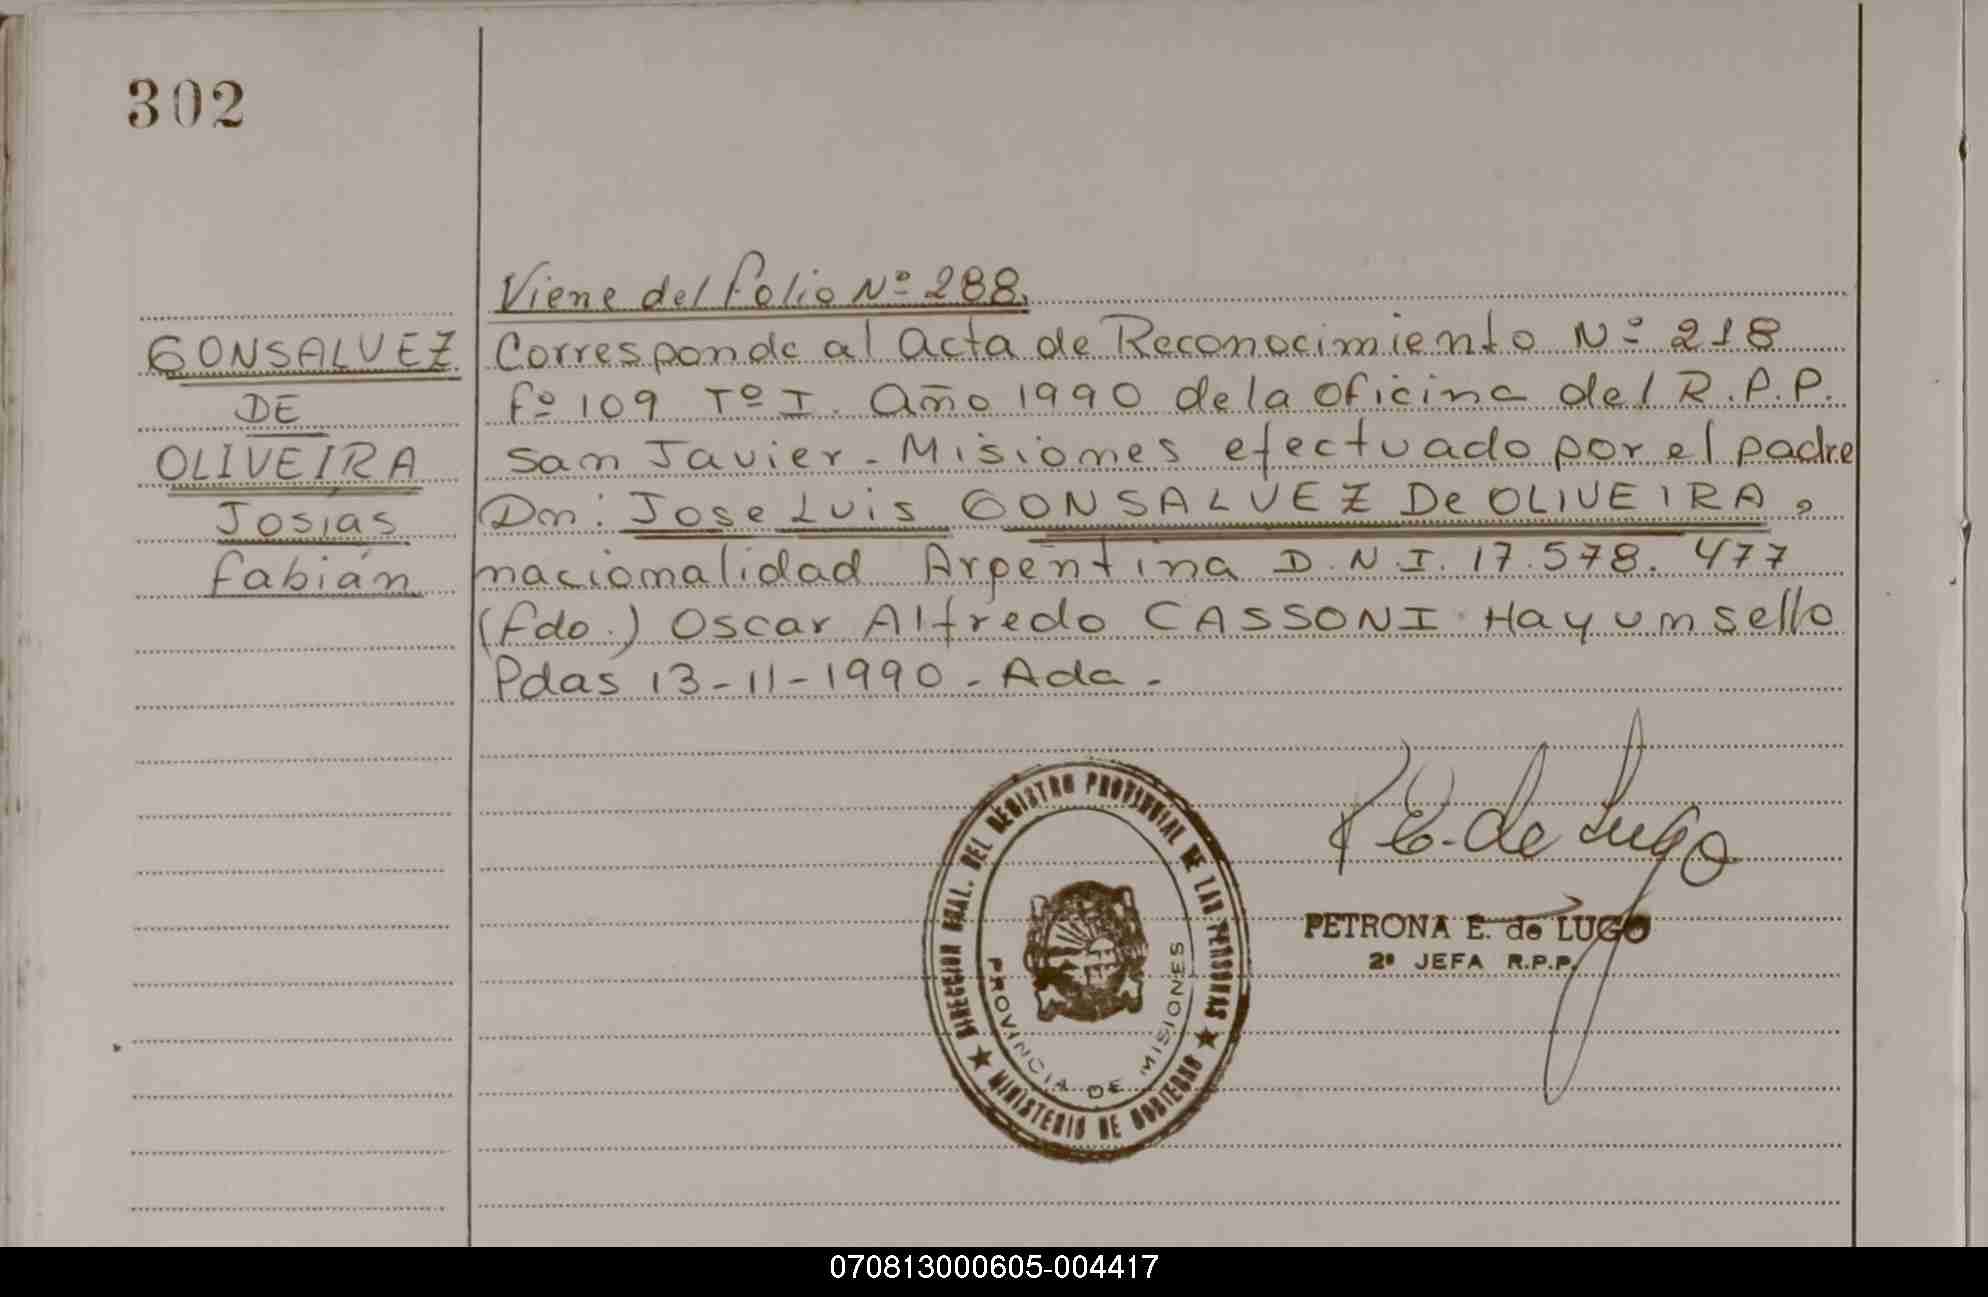 302
Viene del folio Nº 288.
GONSALVEZ
DE
OLIVEIRA
Josías
fabián
Corresponde al Acta de Reconocimiento Nº 218
fº 109 Tº I. Año 1990 de la oficina del R.P.P.
San Javier - Misiones efectuado por el padre
Dn: Jose Luis GONSALVEZ De OLIVEIRA,
nacionalidad Argentina D.N.I. 17.578.477
(fdo.) Oscar Alfredo CASSONI Hay un sello
Pdas 13-11-1990 - Ada -
DIRECCION GRAL. DEL REGISTRO PROVINCIAL DE LAS PERSONAS
★ MINISTERIO DE GOBIERNO ★
PROVINCIA DE MISIONES
P E. de Lugo
PETRONA E. de LUGO
2ª JEFA R.P.P.
070813000605-004417